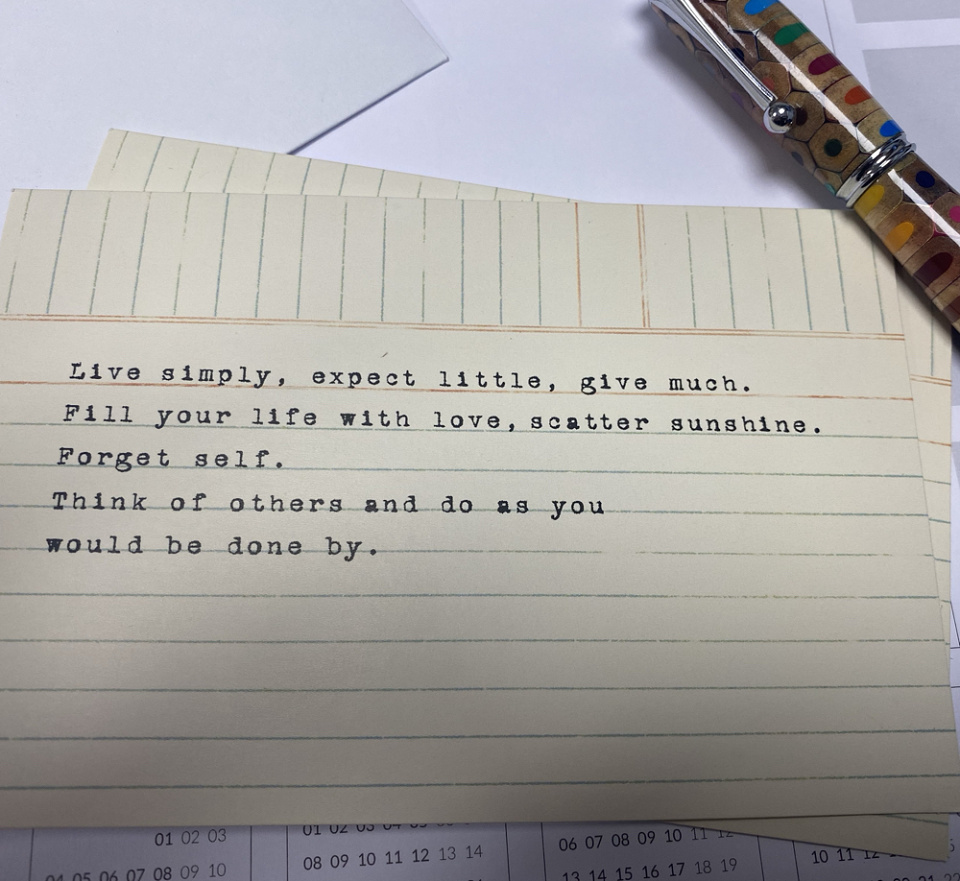 Live simply, expect little, give much.
Fill your life with love, scatter sunshine.
Forget self.
Think of others and do as you
would be done by.
01 02 03
04 05 06 07 08 09 10
01 02 03 04 05 06 07
08 09 10 11 12 13 14
06 07 08 09 10 11 12
13 14 15 16 17 18 19
10 11 12